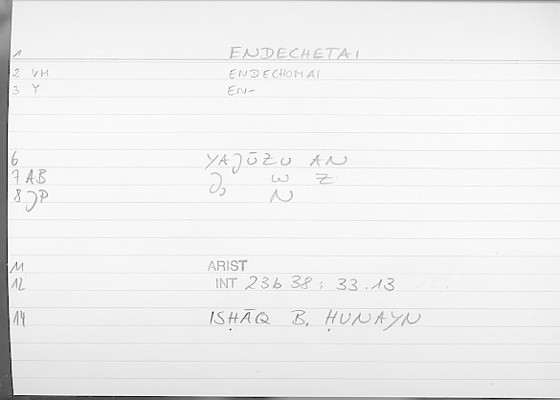 1 ENDECHETAI
2 VM ENDECHOMAI
3 Y EN-
6 YAJŪZU AN
7 AB J, W Z
8 JP N
11 ARIST
12 INT 23b 38 : 33.13
14 ISḤĀQ B. ḤUNAYN